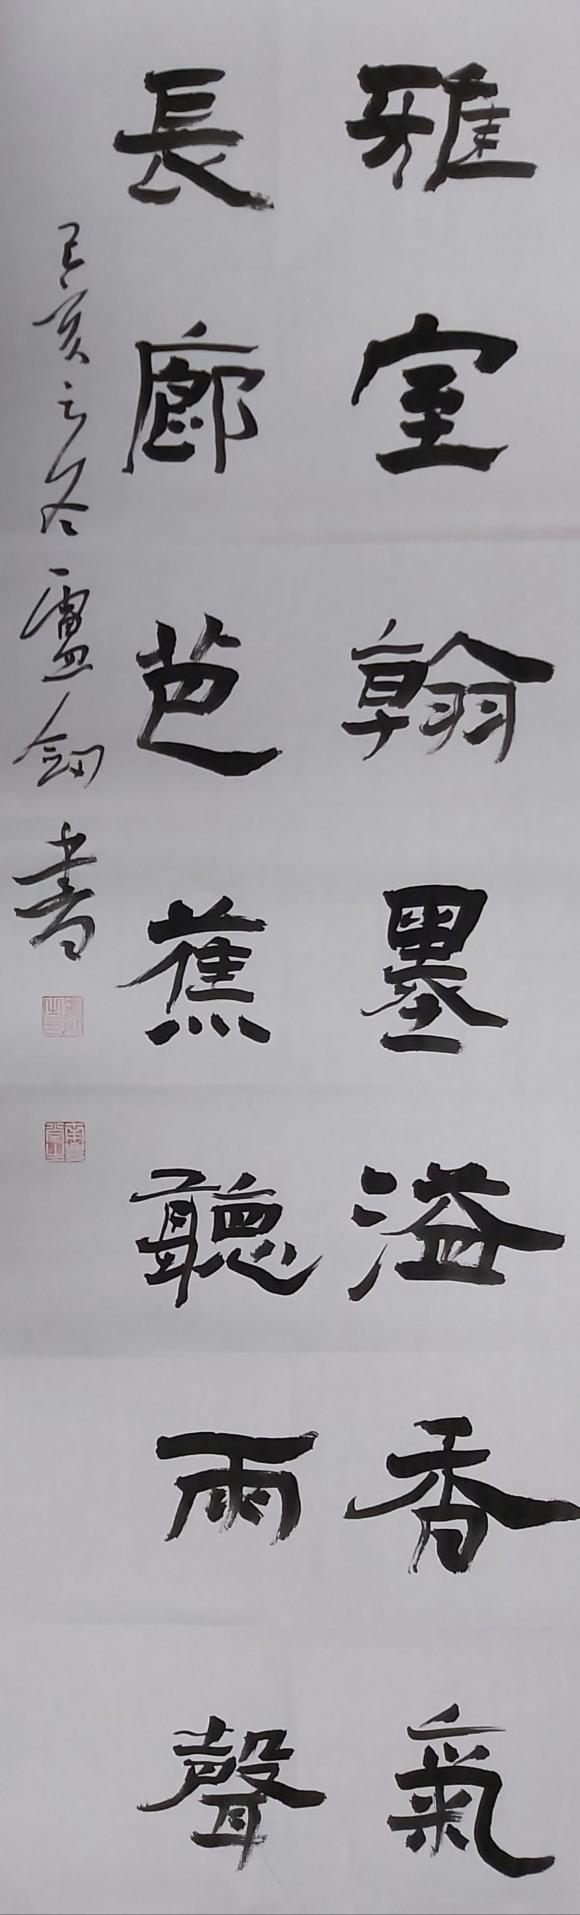 雅室翰墨溢香氣
長廊芭蕉聽雨聲
己亥之冬盧劍書